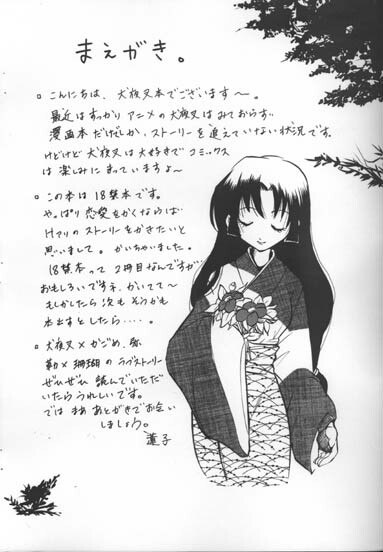 まえがき。
□ こんにちは、犬夜叉本でございます〜。
最近はすっかりアニメの犬夜叉はみておらず、
漫画本だけだしか、ストーリーを追えていない状況です。
けどけど犬夜叉は大好きでコミックス
は楽しみにまっていますよ〜
□ この本は18禁本です。
やっぱり恋愛をかくならば…
Hアリのストーリーをかきたいと
思いまして。かいちゃいました。
18禁本って2冊目なんですが…
おもしろいですネ、かいてて〜
もしかしたら次もそうかも
本出すとしたら‥‥。
□ 犬夜叉×かごめ、弥
勒×珊瑚のラヴストーリー
ぜひぜひ読んでいただ
いたらうれしいです。
では まあ あとがきでお会い
しましょう。
蓮子